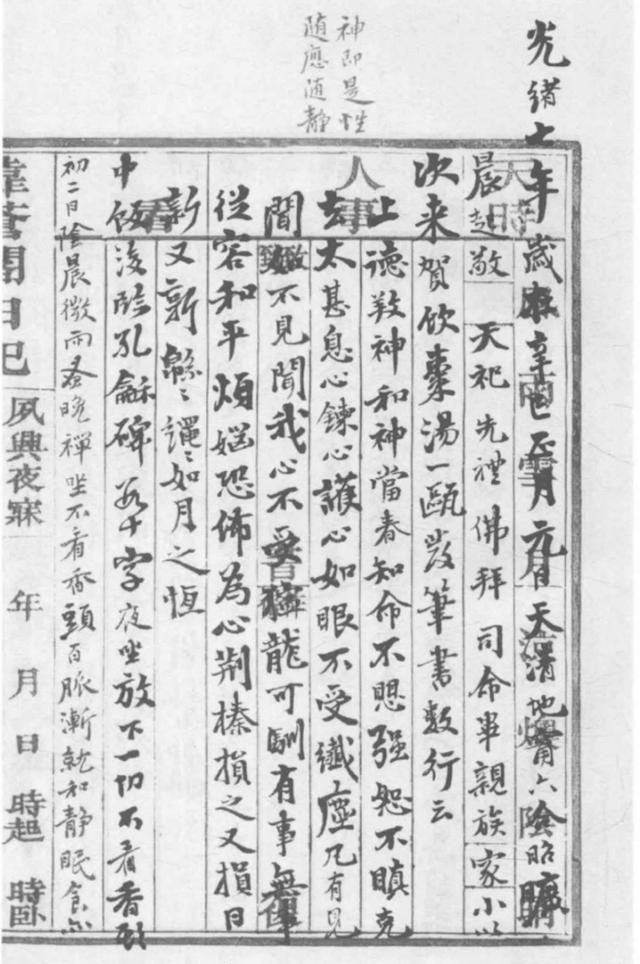 神即是性
随應随静
光緒七年歲在辛巳正月元日天清地甯六陰昭曠
晨起敬天祀先禮佛拜司命畢親族家小以
次来賀飲棗湯一甌發筆書數行云
上德敦神和神當春知命不思强恕不瞋克
去太甚息心鍊心護心如眼不受纖塵凡有見
聞如不見聞我心不受獰龍可馴有事無事
從容和平煩惱恐佈為心荆榛損之又損日
新又新緜緜繩繩如月之恆
中飯後臨孔龢碑若干字夜坐放下一切不看香頭
初二日陰晨微雨蚤晚禪坐不看香頭百脈漸就和静眠食亦
日記
夙興夜寐 年 月 日 時起 時卧
天時
人事